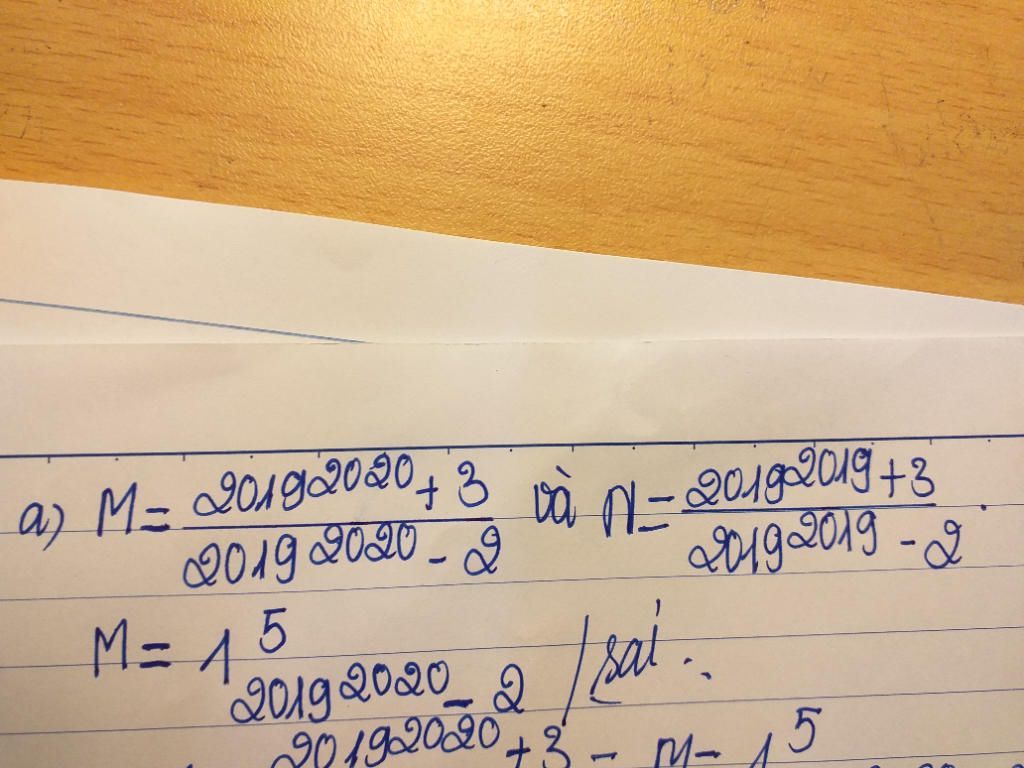 a) M = 2019^2020 + 3 / 2019^2020 - 2 và N = 2019^2019 + 3 / 2019^2019 - 2 .
M = 1 5 / 2019^2020 - 2 / sai .
2019^2020 + 3 - M - 1 5